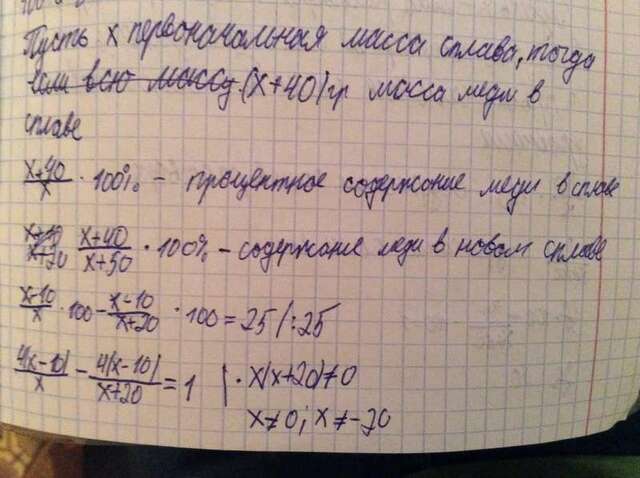 Пусть х первоначальная масса сплава, тогда
если всю массу (х+40)гр масса меди в
сплаве
х+40/х · 100% – процентное содержание меди в сплаве
х+40/х+50 · 100% – содержание меди в новом сплаве
х-10/х · 100 - х-10/х+20 · 100 = 25 /:25
4(х-10)/х - 4(х-10)/х+20 = 1 | · х(х+20)≠0
х≠0; х≠-20